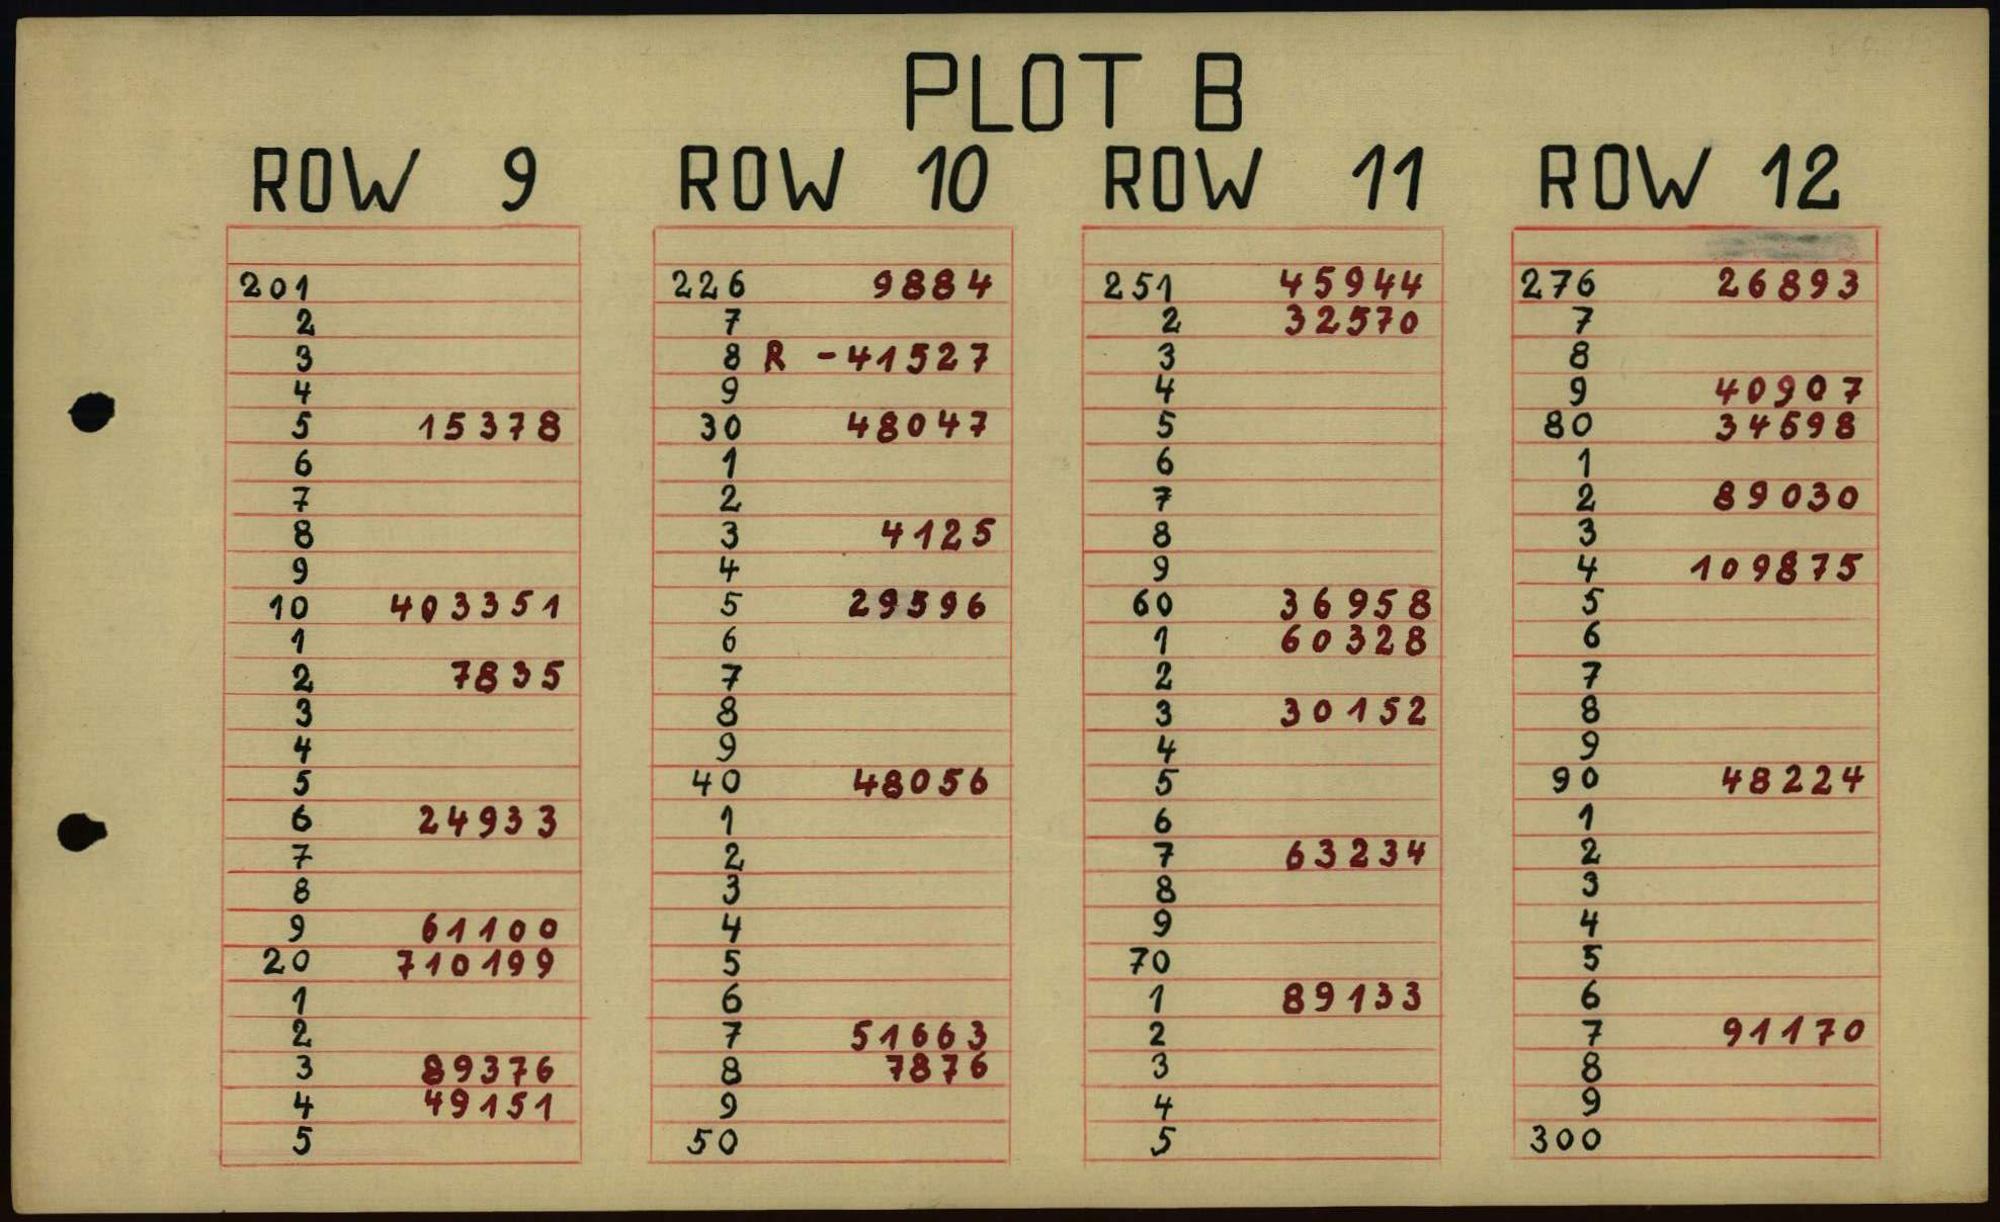 PLOT B
ROW 9
201
2
3
4
5 15378
6
7
8
9
10 403351
1
2 7835
3
4
5
6 24933
7
8
9 61100
20 710199
1
2
3 89376
4 49151
5
ROW 10
226 9884
7
8 R - 41527
9
30 48047
1
2
3 4125
4
5 29596
6
7
8
9
40 48056
1
2
3
4
5
6
7 51663
8 7876
9
50
ROW 11
251 45944
2 32570
3
4
5
6
7
8
9
60 36958
1 60328
2
3 30152
4
5
6
7 63234
8
9
70
1 89133
2
3
4
5
ROW 12
276 26893
7
8
9 40907
80 34598
1
2 89030
3
4 109875
5
6
7
8
9
90 48224
1
2
3
4
5
6
7 91170
8
9
300